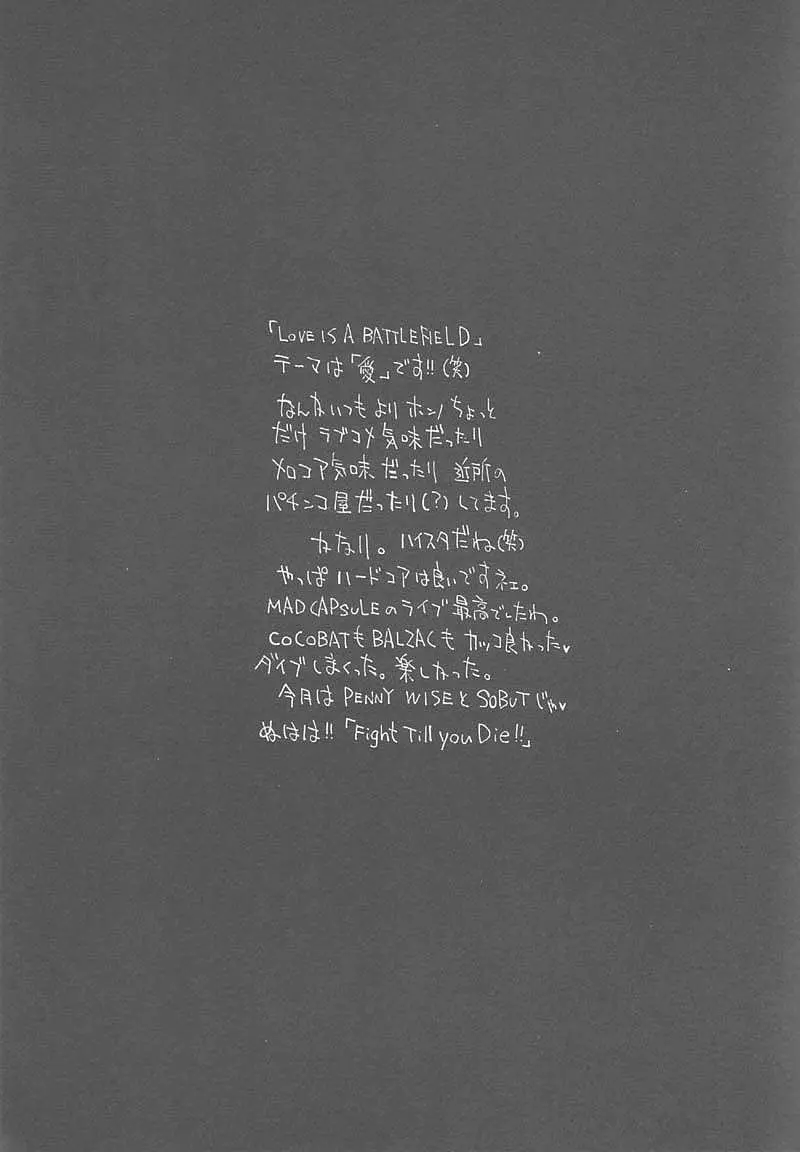 「LOVE IS A BATTLEFIELD」
テーマは「愛」です!!(笑)
なんかいつもより ホンノちょっと
だけ ラブコメ気味だったり
メロコア気味だったり 近所の
パチンコ屋だったり(?)してます。
かなり。ハイスタだね(笑)
やっぱ ハードコアは良いですネェ。
MAD CAPSULEのライブ最高でしたわ。
COCOBATもBALZACも カッコ良かった♥
ダイブしまくった。楽しかった。
今月は PENNY WISEとSOBUTじゃ♥
ぬはは!!「Fight Till you Die!!」